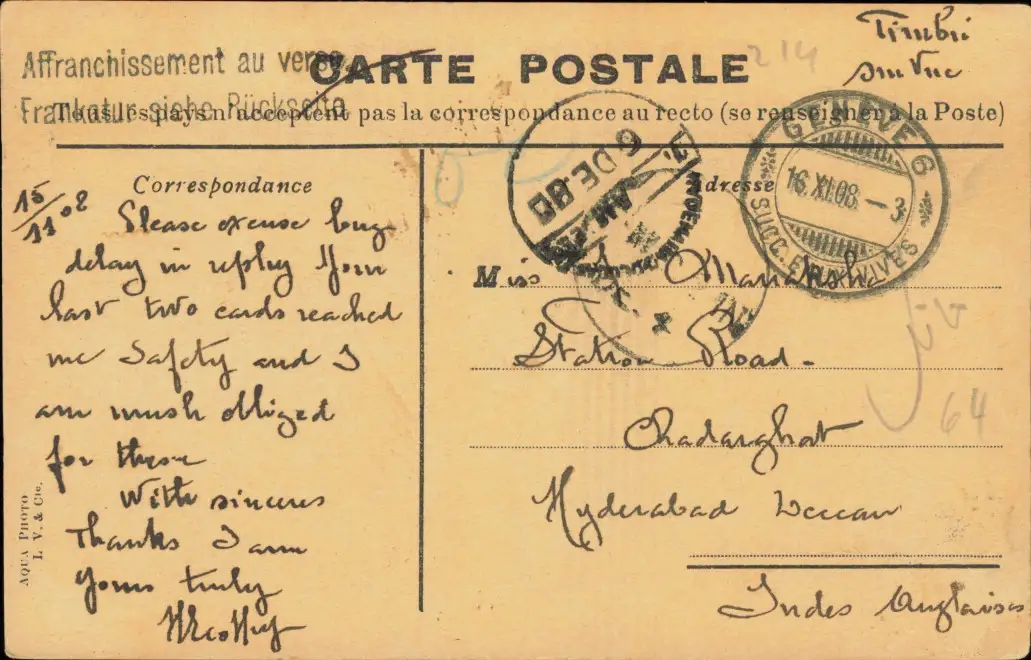 Timbré
sur Vue
214
Affranchissement au verso
Frankatur siehe Rückseite
CARTE POSTALE
Tous les pays n'acceptent pas la correspondance au recto (se renseigner à la Poste)
Correspondance
15/11 08
Please excuse long
delay in reply Your
last two cards reached
me Safety and I
am mush obliged
for these
With sinceres
Thanks I am
Yours truly
AQUA PHOTO
L. V. & Cie.
6 DE. 08
AM
GENÈVE 6
16.XI.08. - 3
SUCC. EAUX-VIVES
Adresse
Miss Manaksha
Station Road -
Chadarghat
Hyderabad Deccan
Indes Anglaises
64